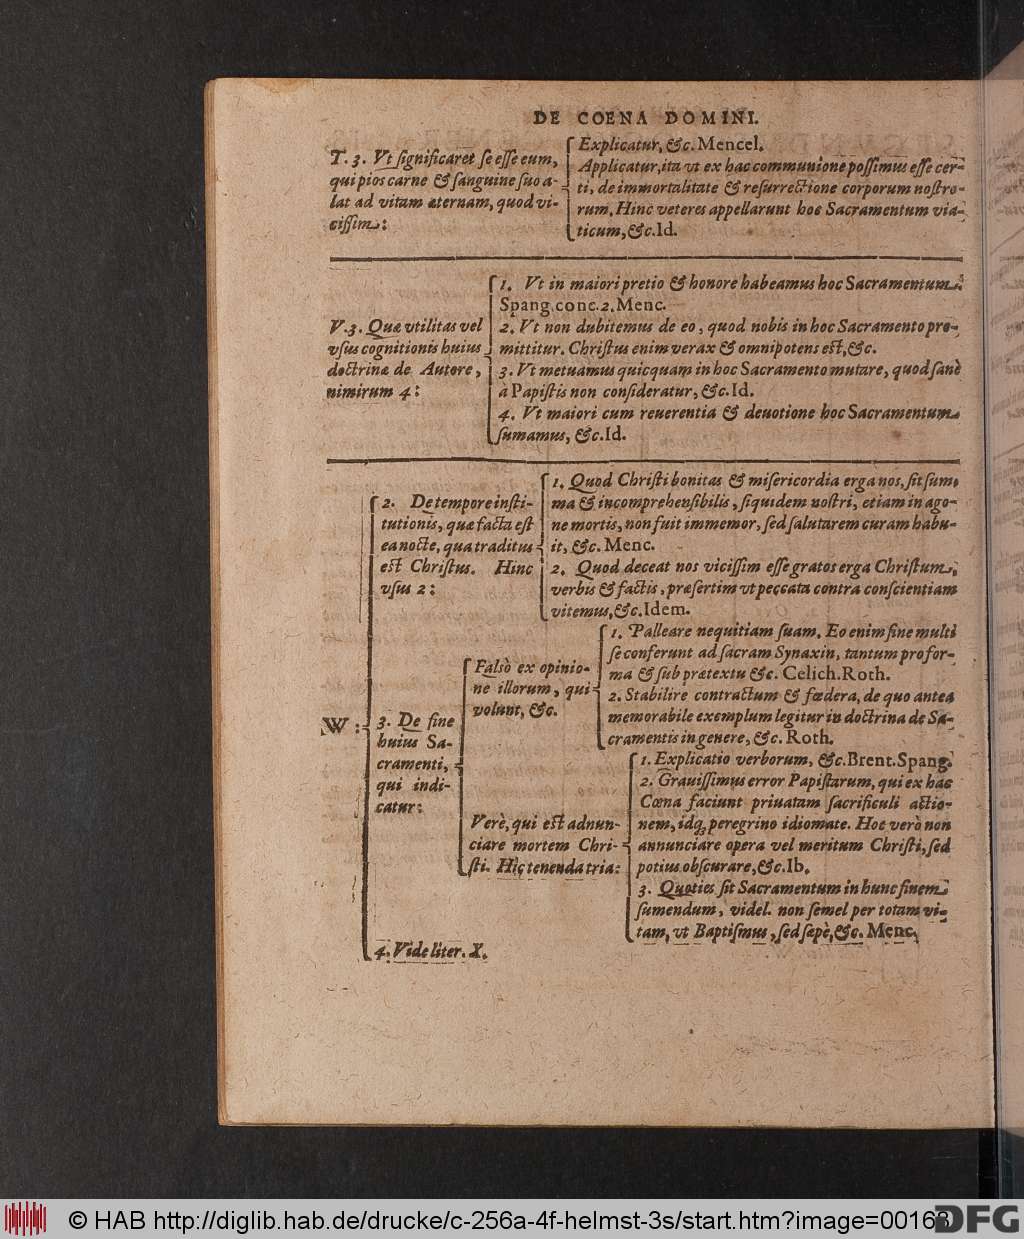 DE COENA DOMINI.
T. 3. Vt significaret se esse eum,
qui pios carne & sanguine suo a-
lat ad vitam æternam, quod vi-
cissim:
Explicatur, &c. Mencel.
Applicatur, ita vt ex hac communione possimus esse cer-
ti, de immortalitate & resurrectione corporum nostro-
rum, Hinc veteres appellarunt hoc Sacramentum via-
ticum, &c. Id.
V. 3. Quæ vtilitas vel
vsus cognitionis huius
doctrinæ de Autore,
nimirum 4:
1. Vt in maiori pretio & honore habeamus hoc Sacramentum.
Spang. conc. 2. Menc.
2. Vt non dubitemus de eo, quod nobis in hoc Sacramento pro-
mittitur. Christus enim verax & omnipotens est, &c.
3. Vt metuamus quicquam in hoc Sacramento mutare, quod sanè
à Papistis non consideratur, &c. Id.
4. Vt maiori cum reuerentia & deuotione hoc Sacramentum
sumamus, &c. Id.
W:
2. De tempore insti-
tutionis, quæ facta est
ea nocte, qua traditus
est Christus. Hinc
vsus 2:
1. Quod Christi bonitas & misericordia erga nos, sit sum-
ma & incomprehensibilis, siquidem nostri, etiam in ago-
ne mortis, non fuit immemor, sed salutarem curam habu-
it, &c. Menc.
2. Quod deceat nos vicissim esse gratos erga Christum,
verbis & factis, præsertim vt peccata contra conscientiam
vitemus, &c. Idem.
3. De fine
huius Sa-
cramenti,
qui indi-
catur:
Falsò ex opinio-
ne illorum, qui
volunt, &c.
1. Palleare nequitiam suam. Eo enim fine multi
se conferunt ad sacram Synaxin, tantum pro for-
ma & sub prætextu &c. Celich. Roth.
2. Stabilire contractum & fœdera, de quo antea
memorabile exemplum legitur in doctrina de Sa-
cramentis in genere, &c. Roth.
Verè, qui est adnun-
ciare mortem Chri-
sti. Hîc tenenda tria:
1. Explicatio verborum, &c. Brent. Spang.
2. Grauissimus error Papistarum, qui ex hac
Cœna faciunt priuatam sacrificuli actio-
nem, idq; peregrino idiomate. Hoc verò non
annunciare opera vel meritum Christi, sed
potius obscurare, &c. Ib.
3. Quoties sit Sacramentum in hunc finem
sumendum, videl. non semel per totam vi-
tam, vt Baptismus, sed sæpè, &c. Menc.
4. Vide liter. X.
© HAB http://diglib.hab.de/drucke/c-256a-4f-helmst-3s/start.htm?image=00168
DFG